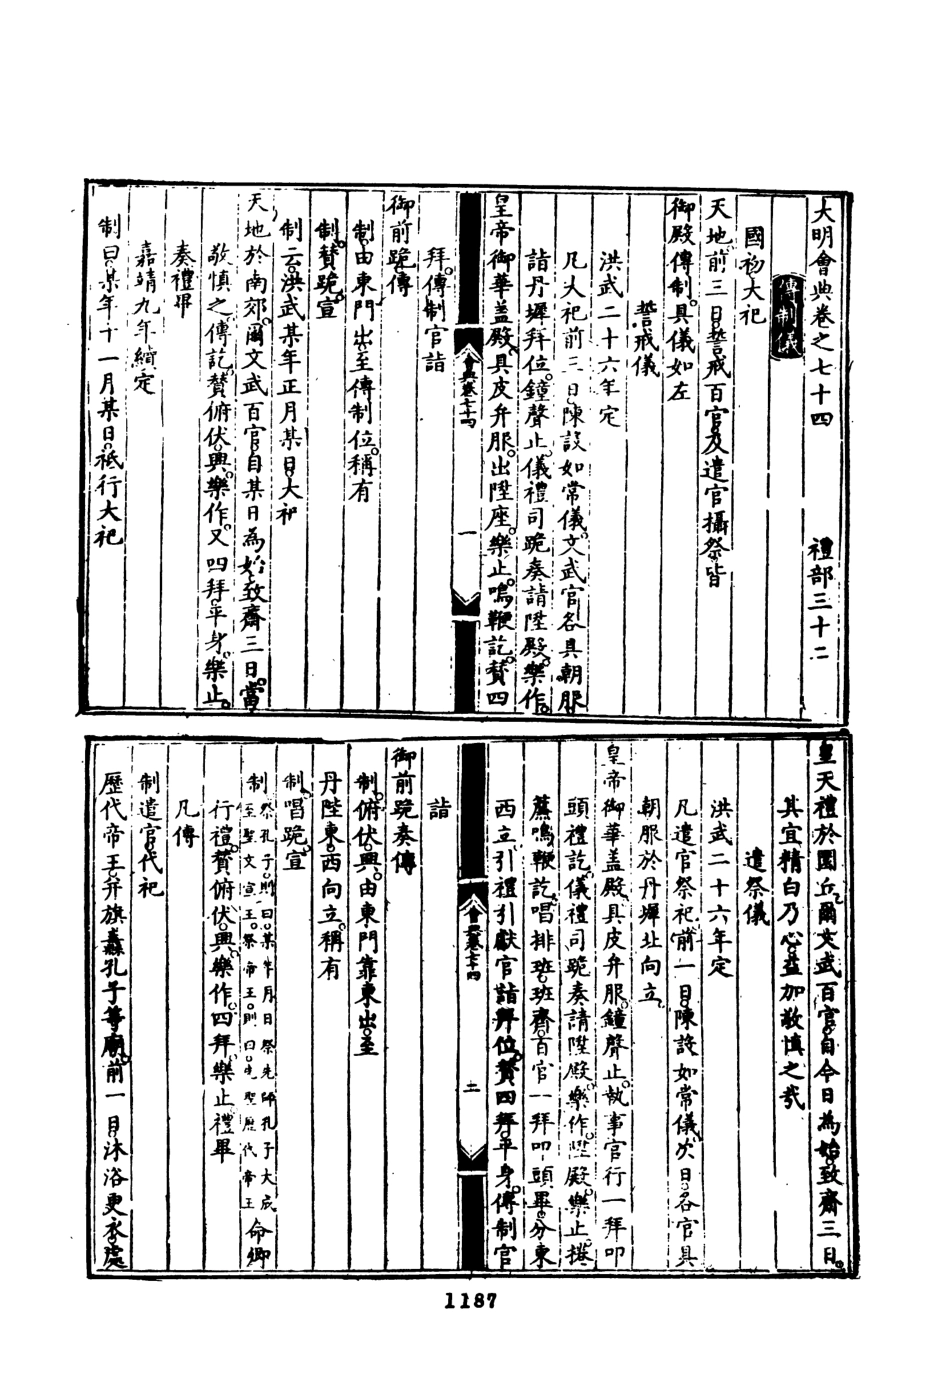 大明會典卷之七十四　禮部三十二
傳制儀
國初大祀
天地前三日誓戒百官及遣官攝祭皆
御殿傳制具儀如左
誓戒儀
洪武二十六年定
凡大祀前三日陳設如常儀文武官各具朝服
詣丹墀拜位鐘聲止儀禮司跪奏請陞殿樂作
皇帝御華蓋殿具皮弁服出陞座樂止鳴鞭訖贊四
會典卷七十四　一
拜傳制官詣
御前跪傳
制由東門出至傳制位稱有
制贊跪宣
制云洪武某年正月某日大祀
天地於南郊爾文武百官自某日為始致齋三日當
敬慎之傳訖贊俯伏興樂作又四拜平身樂止
奏禮畢
嘉靖九年續定
制曰某年十一月某日祗行大祀
皇天禮於圜丘爾文武百官自今日為始致齋三日
其宜精白乃心益加敬慎之哉
遣祭儀
洪武二十六年定
凡遣官祭祀前一日陳設如常儀次日各官具
朝服於丹墀北向立
皇帝御華蓋殿具皮弁服鐘聲止執事官行一拜叩
頭禮訖儀禮司跪奏請陞殿樂作陞殿樂止捲
簾鳴鞭訖唱排班班齊百官一拜叩頭畢分東
西立引禮引獻官詣拜位贊四拜平身傳制官
會典卷七十四
詣
御前跪奏傳
制俯伏興由東門靠東出至
丹陛東西向立稱有
制唱跪宣
制祭孔子則曰某年月日祭先師孔子大成
至聖文宣王祭帝王則曰先聖歷代帝王命卿
行禮贊俯伏興樂作四拜樂止禮畢
凡傳
制遣官代祀
歷代帝王并旗纛孔子等廟前一日沐浴更衣處
1187